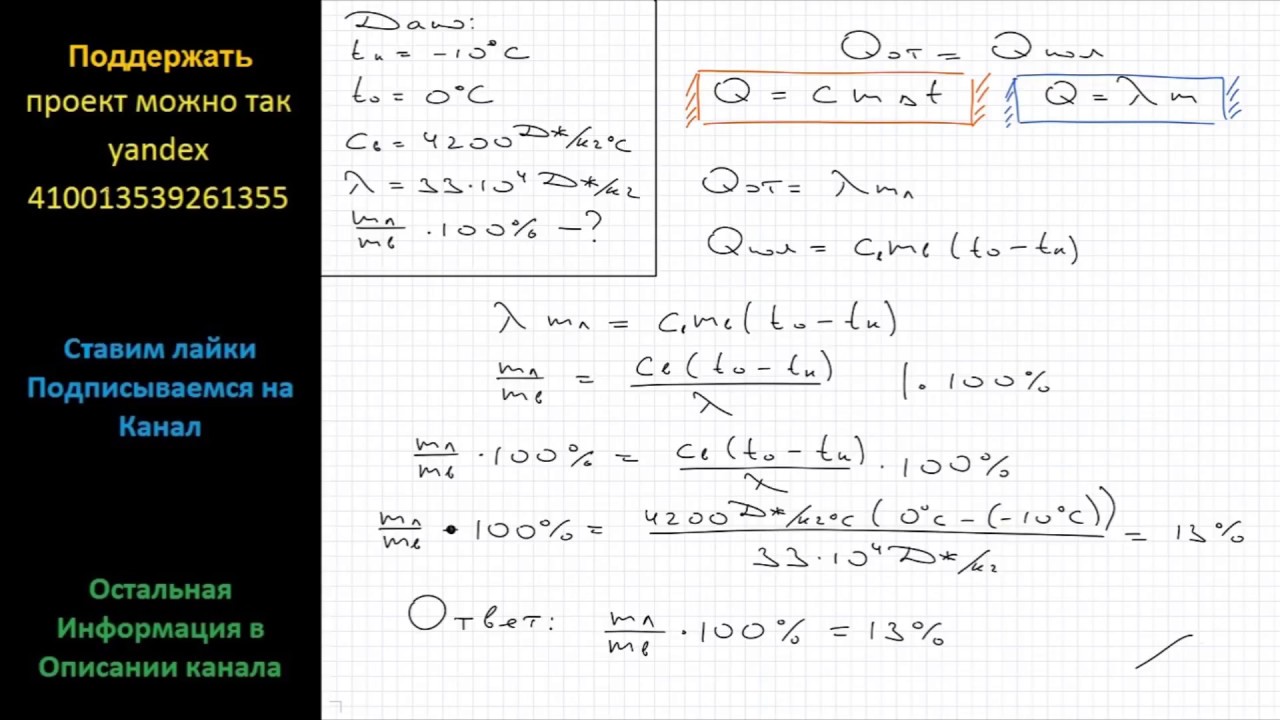 Поддержать
проект можно так
yandex
410013539261355
Ставим лайки
Подписываемся на
Канал
Остальная
Информация в
Описании канала
Дано:
tк = -10°C
t₀ = 0°C
Cв = 4200 Дж/кг°C
λ = 33·10⁴ Дж/кг
mл/mв · 100% - ?
Qот = Qпол
Q = c m Δt
Q = λ m
Qот = λ mл
Qпол = cвmв (t₀ - tк)
λ mл = cвmв (t₀ - tк)
mл/mв = cв (t₀ - tк)/λ |· 100%
mл/mв · 100% = cв (t₀ - tк)/λ · 100%
mл/mв · 100% = 4200 Дж/кг°C (0°C - (-10°C))/33·10⁴ Дж/кг = 13%
Ответ: mл/mв · 100% = 13%